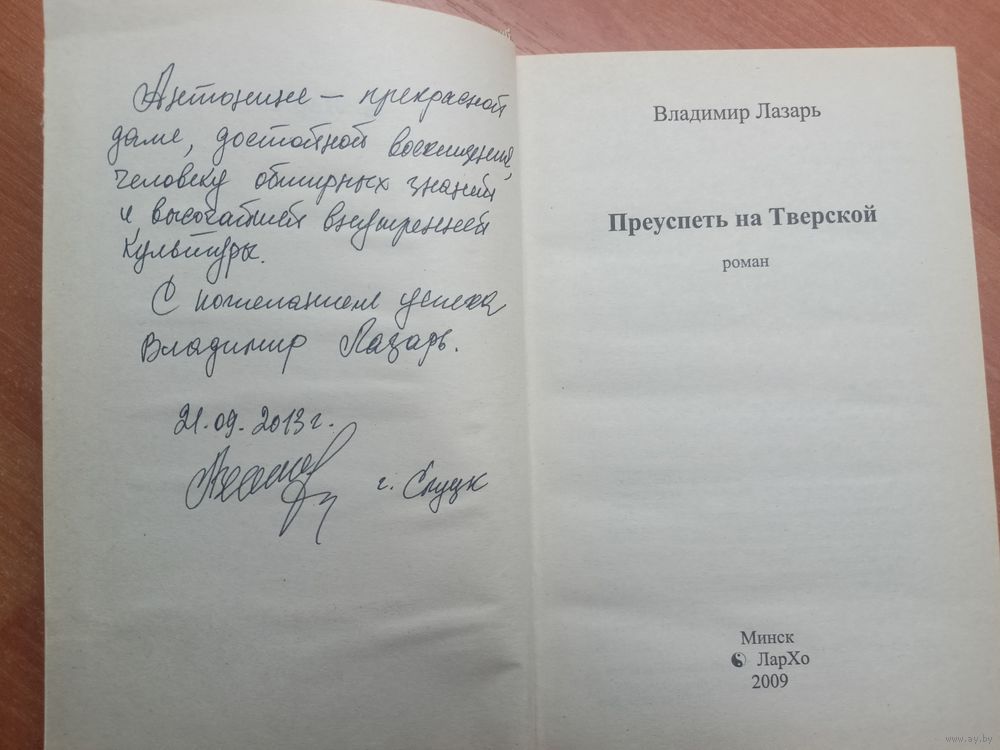 Антонине – прекрасной
даме, достойной восхищения,
человеку обширных знаний
и высочайшей внутренней
культуры.
С пожеланием успеха
Владимир Лазарь.
21.09.2013 г.
г. Слуцк
Владимир Лазарь
Преуспеть на Тверской
роман
Минск
ЛарХо
2009
www.ay.by